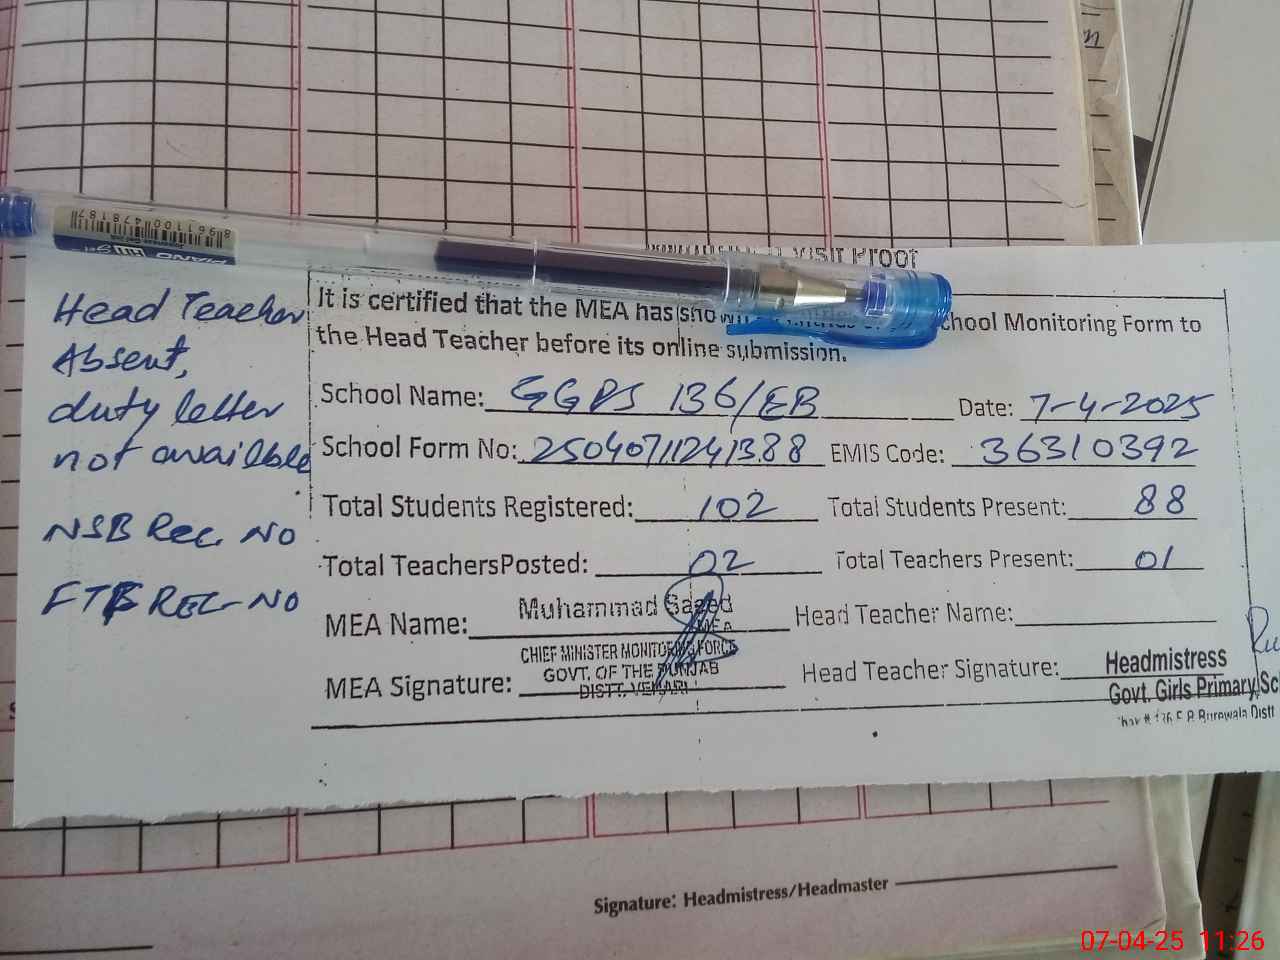 Visit Proof
It is certified that the MEA has shown School Monitoring Form to
the Head Teacher before its online submission.
School Name: GGPS 136/EB Date: 7-4-2025
School Form No: 25040711241388 EMIS Code: 36310392
Total Students Registered: 102 Total Students Present: 88
Total TeachersPosted: 02 Total Teachers Present: 01
MEA Name: Muhammad Saeed Head Teacher Name:
MEA
CHIEF MINISTER MONITORING FORCE
GOVT. OF THE PUNJAB
DISTT. VEHARI
MEA Signature: Head Teacher Signature:
Headmistress
Govt. Girls Primary Sc
136 E.B Burewala Distt
Head Teacher
Absent,
duty letter
not availble
NSB Rec. NO
FTF REC- NO
8961100478187
PIANO
Signature: Headmistress/Headmaster
07-04-25 11:26